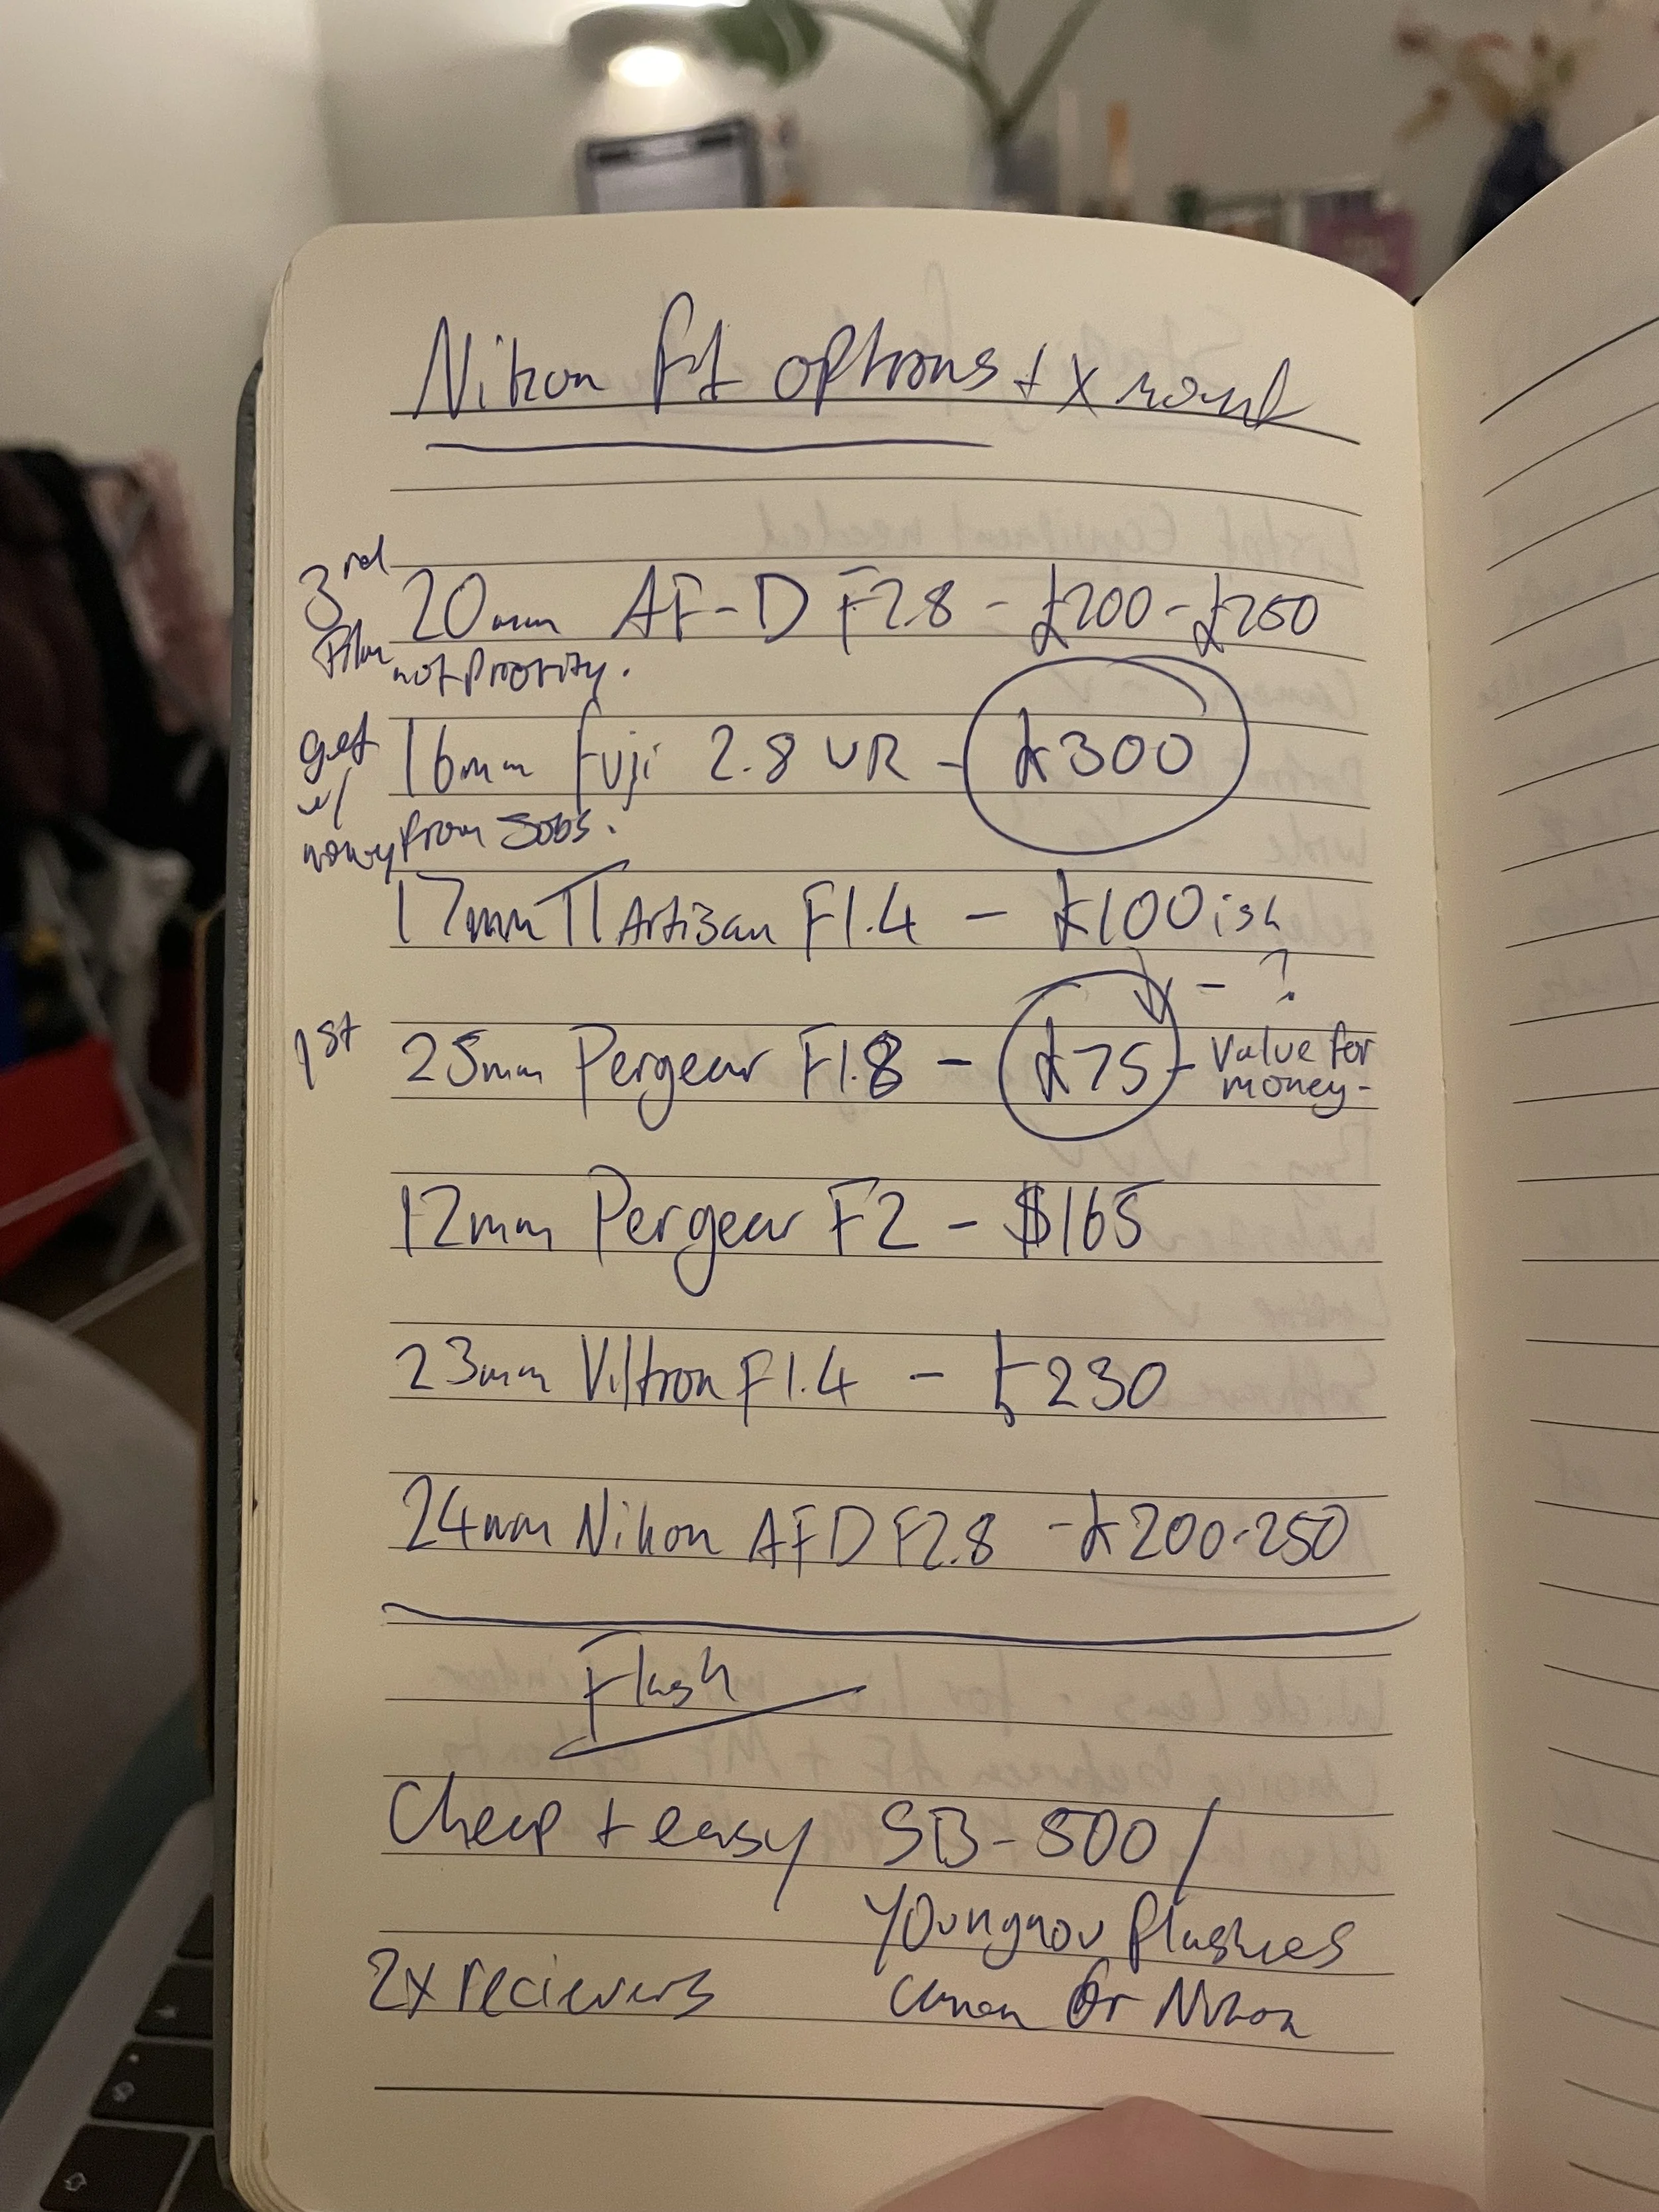 Nikon ff options + x mount
3rd 20mm AF-D F2.8 - £200-£250
Film not priority.
get 16mm Fuji 2.8 WR - £300
w/
money from Jobs.
17mm TTArtizan F1.4 - £100ish
- ?
1st 25mm Pergear F1.8 - £75 - Value for
money-
12mm Pergear F2 - $165
23mm Viltron F1.4 - £230
24mm Nikon AFD F2.8 - £200-250
Flash
Cheap + easy SB-800/
Youngnou flashes
2x recievers Canon or Nikon